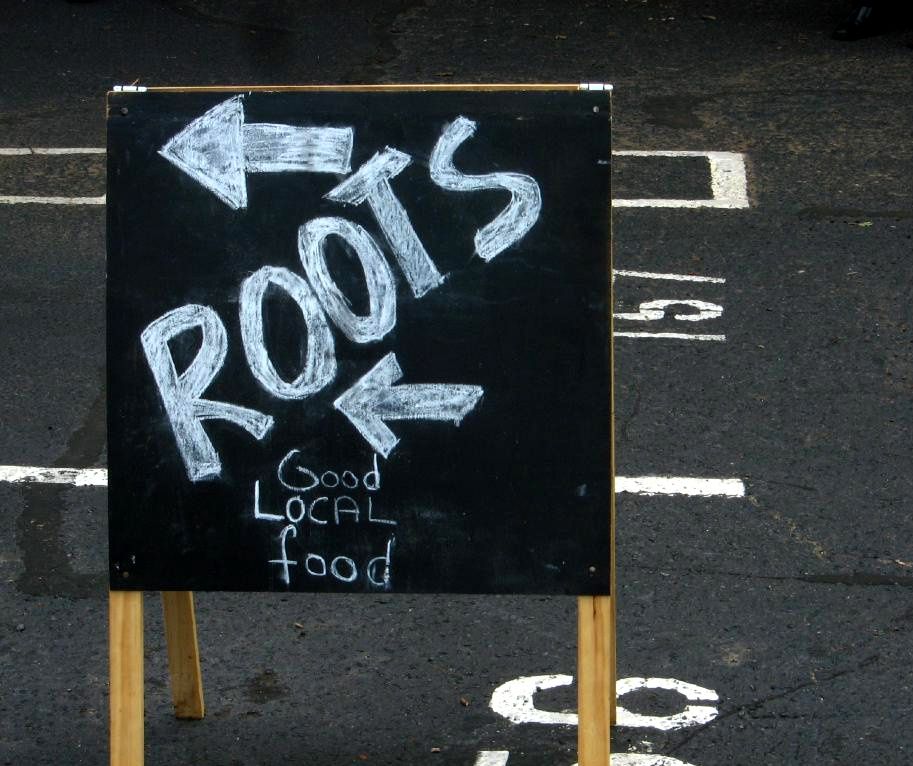 ROOTS
Good
LOCAL
food